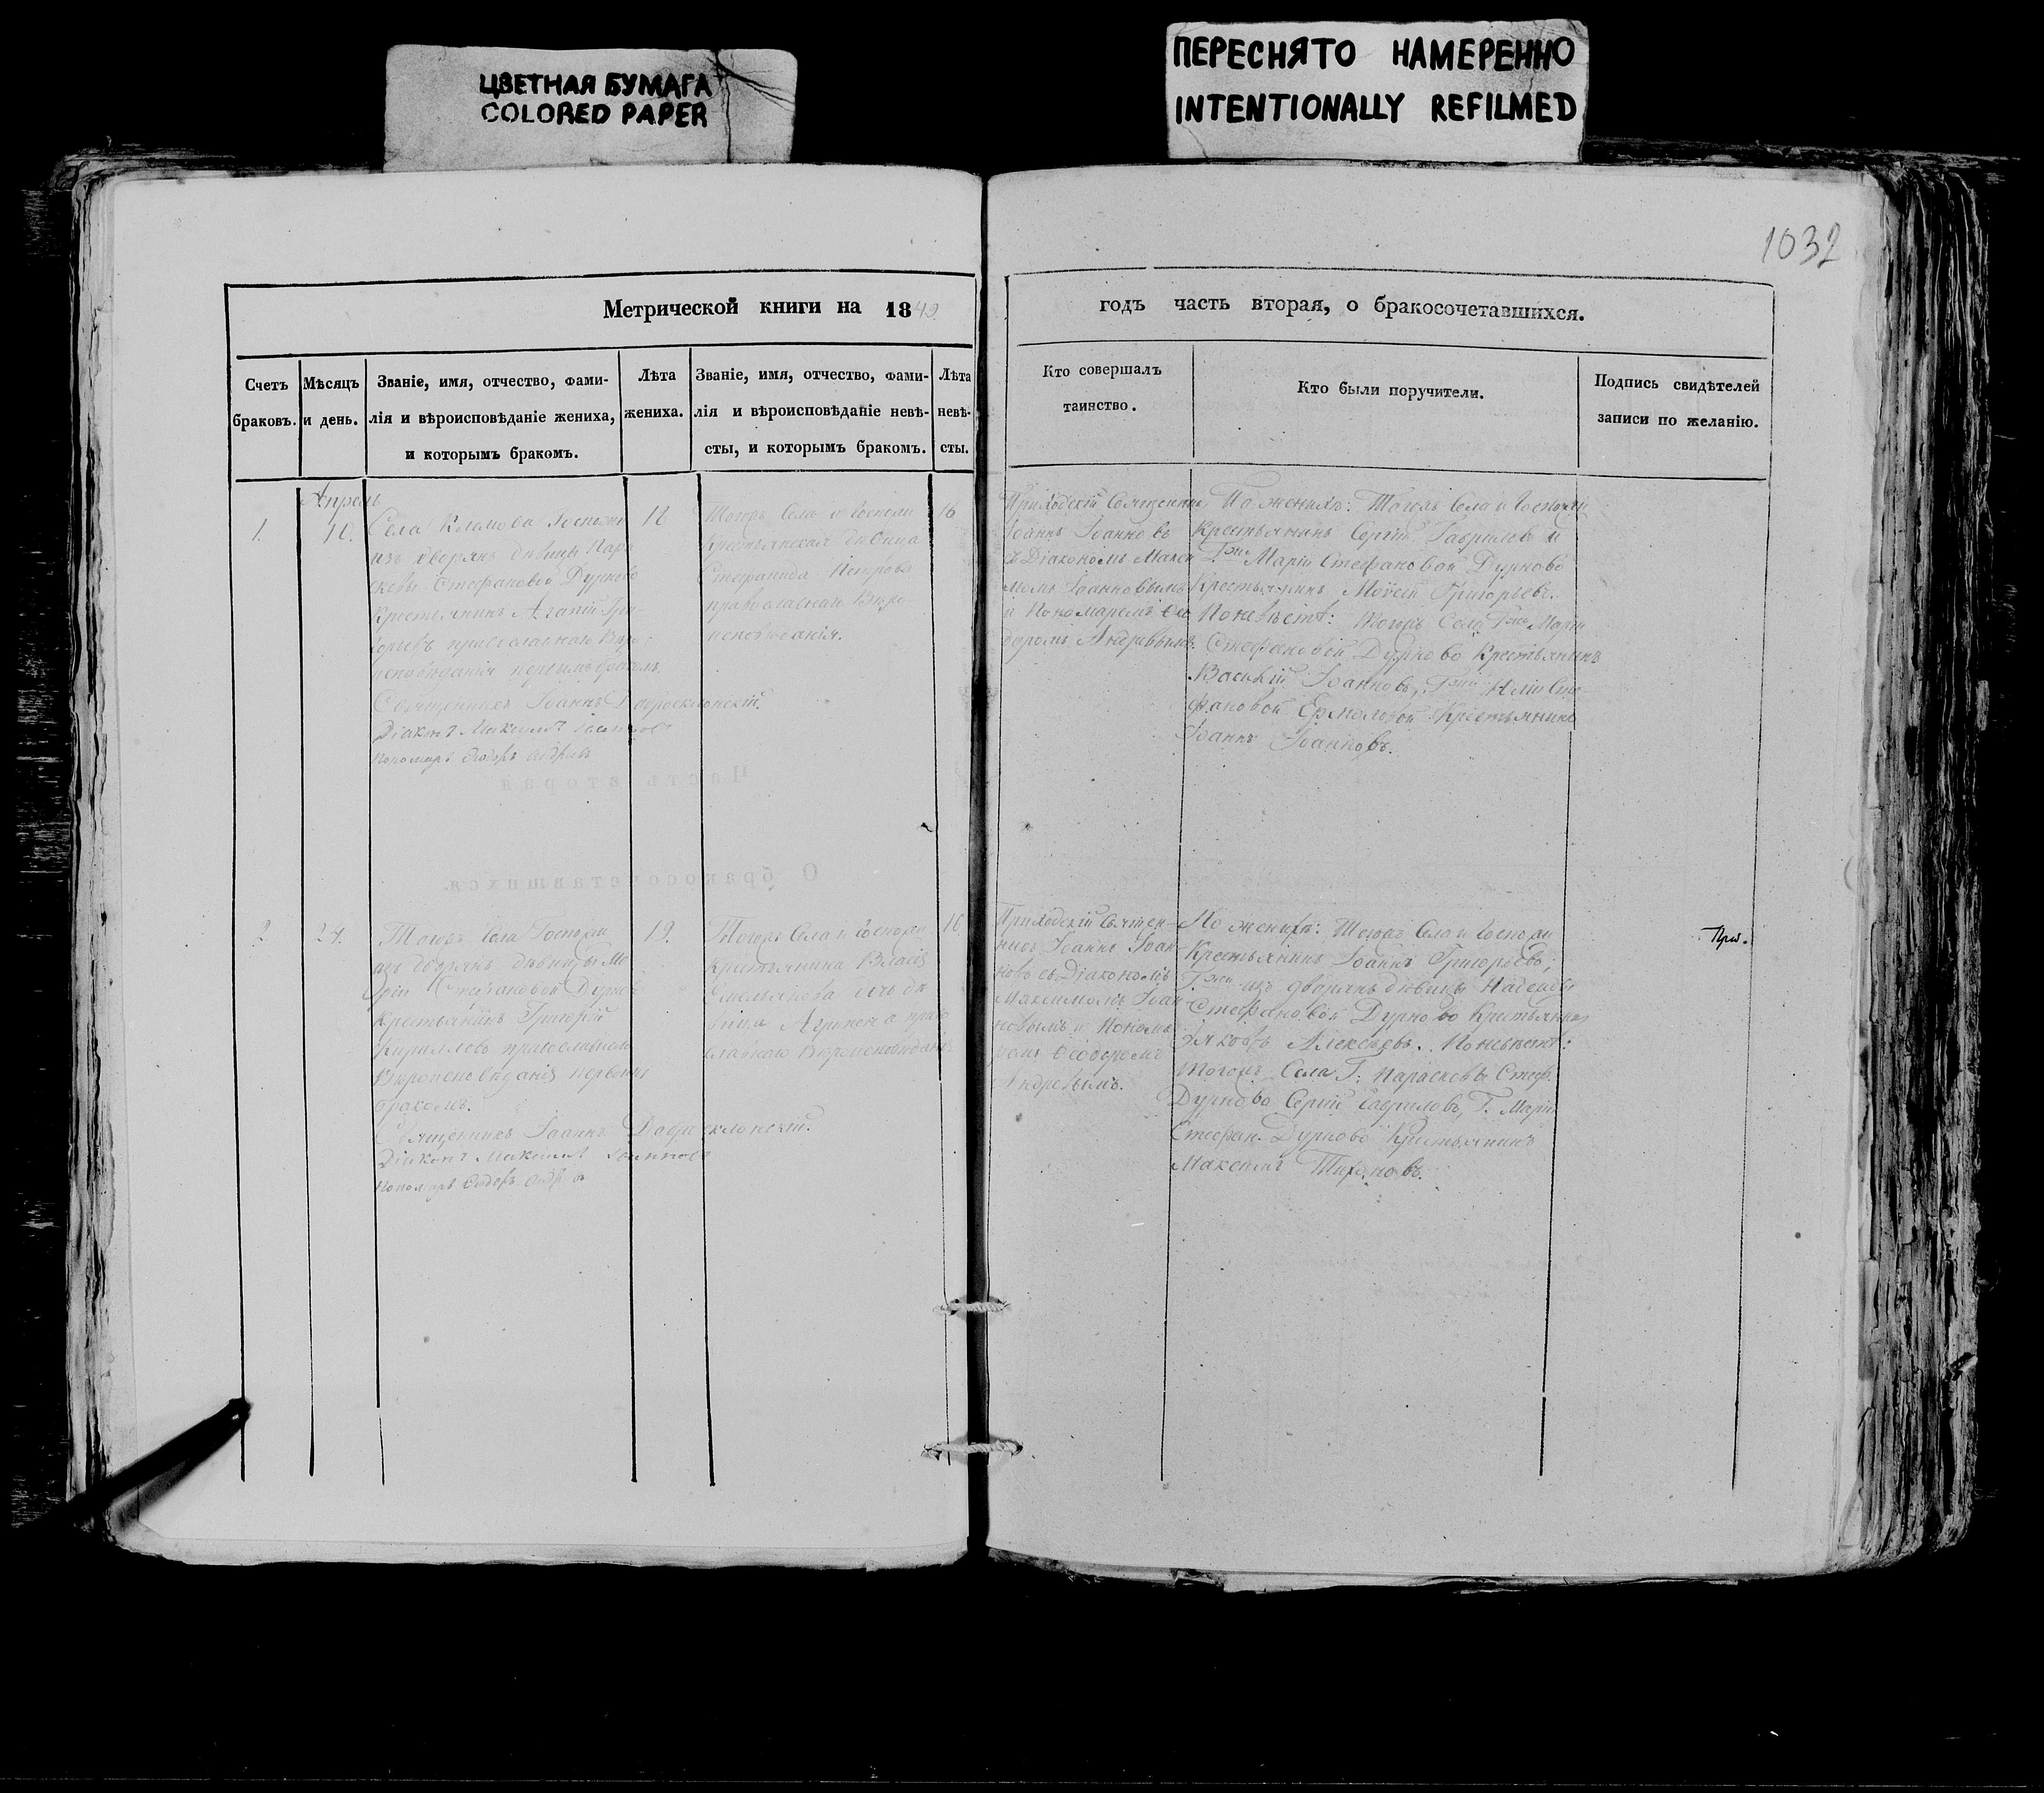 ЦВЕТНАЯ БУМАГА
COLORED PAPER
ПЕРЕСНЯТО НАМЕРЕННО
INTENTIONALLY REFILMED
1032
Метрической книги на 18
Счетъ браковъ.
Мѣсяцъ и день.
Званіе, имя, отчество, фами-
лія и вѣроисповѣданіе жениха,
и которымъ бракомъ.
Лѣта
жениха.
Званіе, имя, отчество, фами-
лія и вѣроисповѣданіе невѣ-
сты, и которымъ бракомъ.
Лѣта
невѣ-
сты.
годъ часть вторая, о бракосочетавшихся.
Кто совершалъ
таинство.
Кто были поручители.
Подпись свидѣтелей
записи по желанію.
Апрель
1.
10.
Села Госпожи
изъ дворянъ дѣвицы Пара
скевы Стефановой Дурново
Крестьянинъ Агапій Гри-
горьевъ православнаго Вѣро-
исповѣданія первымъ бракомъ
Священникъ Іоаннъ Доброклонскій.
Діаконъ Максимъ Іоанновъ
Пономарь
18
Тогожъ Села и Госпожи
крестьянская дѣвица
Стефанида Петрова
православнаго Вѣро-
исповѣданія.
16
Приходскій Священникъ
Іоаннъ Іоанновъ
съ Діакономъ Макси
момъ Іоанновымъ
и Пономаремъ Ѳео
доромъ Андреевымъ.
По женихѣ: Тогожъ Села и Госпожи
Крестьянинъ Сергій Гавриловъ и
Гжи Маріи Стефановой Дурново
Крестьянинъ Моѵсей Григорьевъ.
По невѣстѣ: Тогожъ Села Гжи Маріи
Стефановой Дурново Крестьянинъ
Василій Іоанновъ, Гжи Сте-
фановой Ермоловой Крестьянинъ
Іоаннъ Іоанновъ.
Часть вторая
О бракосочетавшихся.
2
24.
Тогожъ Села Госпожи
изъ дворянъ дѣвицы Ма
ріи Стефановой Дурново
Крестьянинъ Григорій
Кирилловъ православнаго
Вѣроисповѣданія первымъ
бракомъ.
Священникъ Іоаннъ Доброклонскій.
Діаконъ Максимъ Іоанновъ
Пономарь
19.
Тогожъ Села и Госпожи
крестьянина Власія
Емельянова дочь дѣ
вица право
славнаго Вѣроисповѣданія
16
Приходскій Священ-
никъ Іоаннъ Іоан-
новъ съ Діакономъ
Максимомъ Іоан
новымъ и Понома
ремъ Ѳеодоромъ
Андреевымъ.
По женихѣ: Тогожъ Села и Госпожи
Крестьянинъ Іоаннъ Григорьевъ;
Гжи изъ дворянъ дѣвицы Надежды
Стефановой Дурново Крестьянинъ
Іяковъ Алексѣевъ. По невѣстѣ:
Тогожъ Села Г. Параскевы Стеф.
Дурново Сергій Гавриловъ, Г. Маріи
Стефан. Дурново Крестьянинъ
Максимъ Тихоновъ.